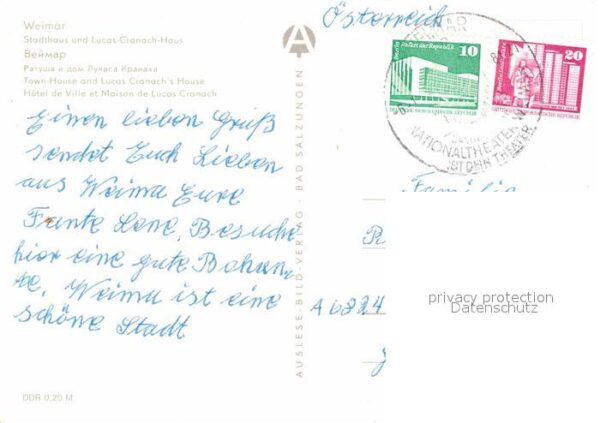 Weimar
Stadthaus und Lucas-Cranach-Haus
Веймар
Ратуша и дом Лукаса Кранаха
Town-House and Lucas Cranach's House
Hôtel de Ville et Maison de Lucas Cranach
Einen lieben Gruß
sendet Euch Lieben
aus Weima Eure
Tante Lene. Besuche
hier eine gute Bekann-
te. Weima ist eine
schöne Stadt
DDR 0,20 M
AUSLESE-BILD-VERLAG · BAD SALZUNGEN
Österreich
10
Berlin Palast der Republik
20
WEIMAR
NATIONALTHEATER WEIMAR
IST DEIN THEATER
Familie
A 6224
privacy protection
Datenschutz